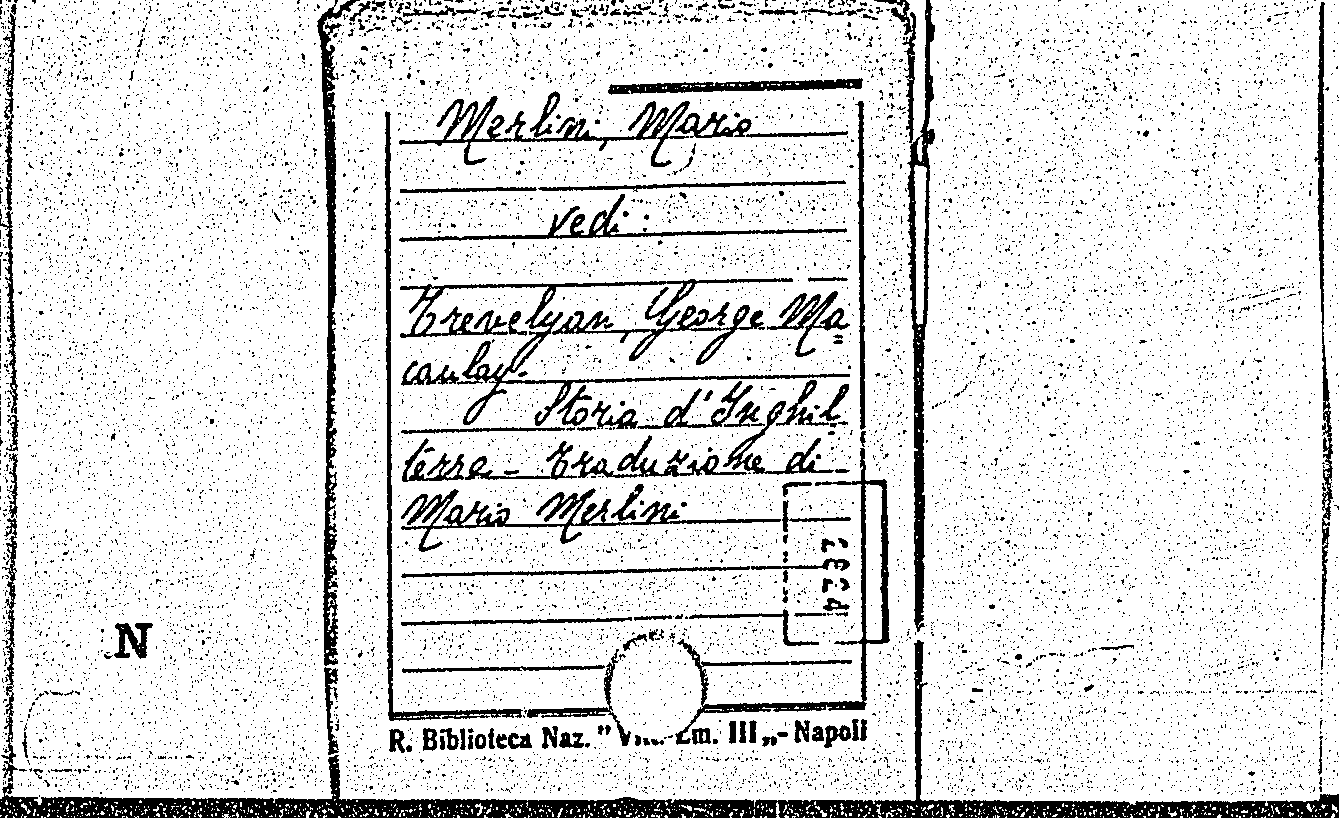 Merlini, Mario
vedi:
Trevelyan, George Ma
caulay.
Storia d'Inghil
terra - Traduzione di
Mario Merlini
2824
N
R. Biblioteca Naz. " Em. III „ - Napoli